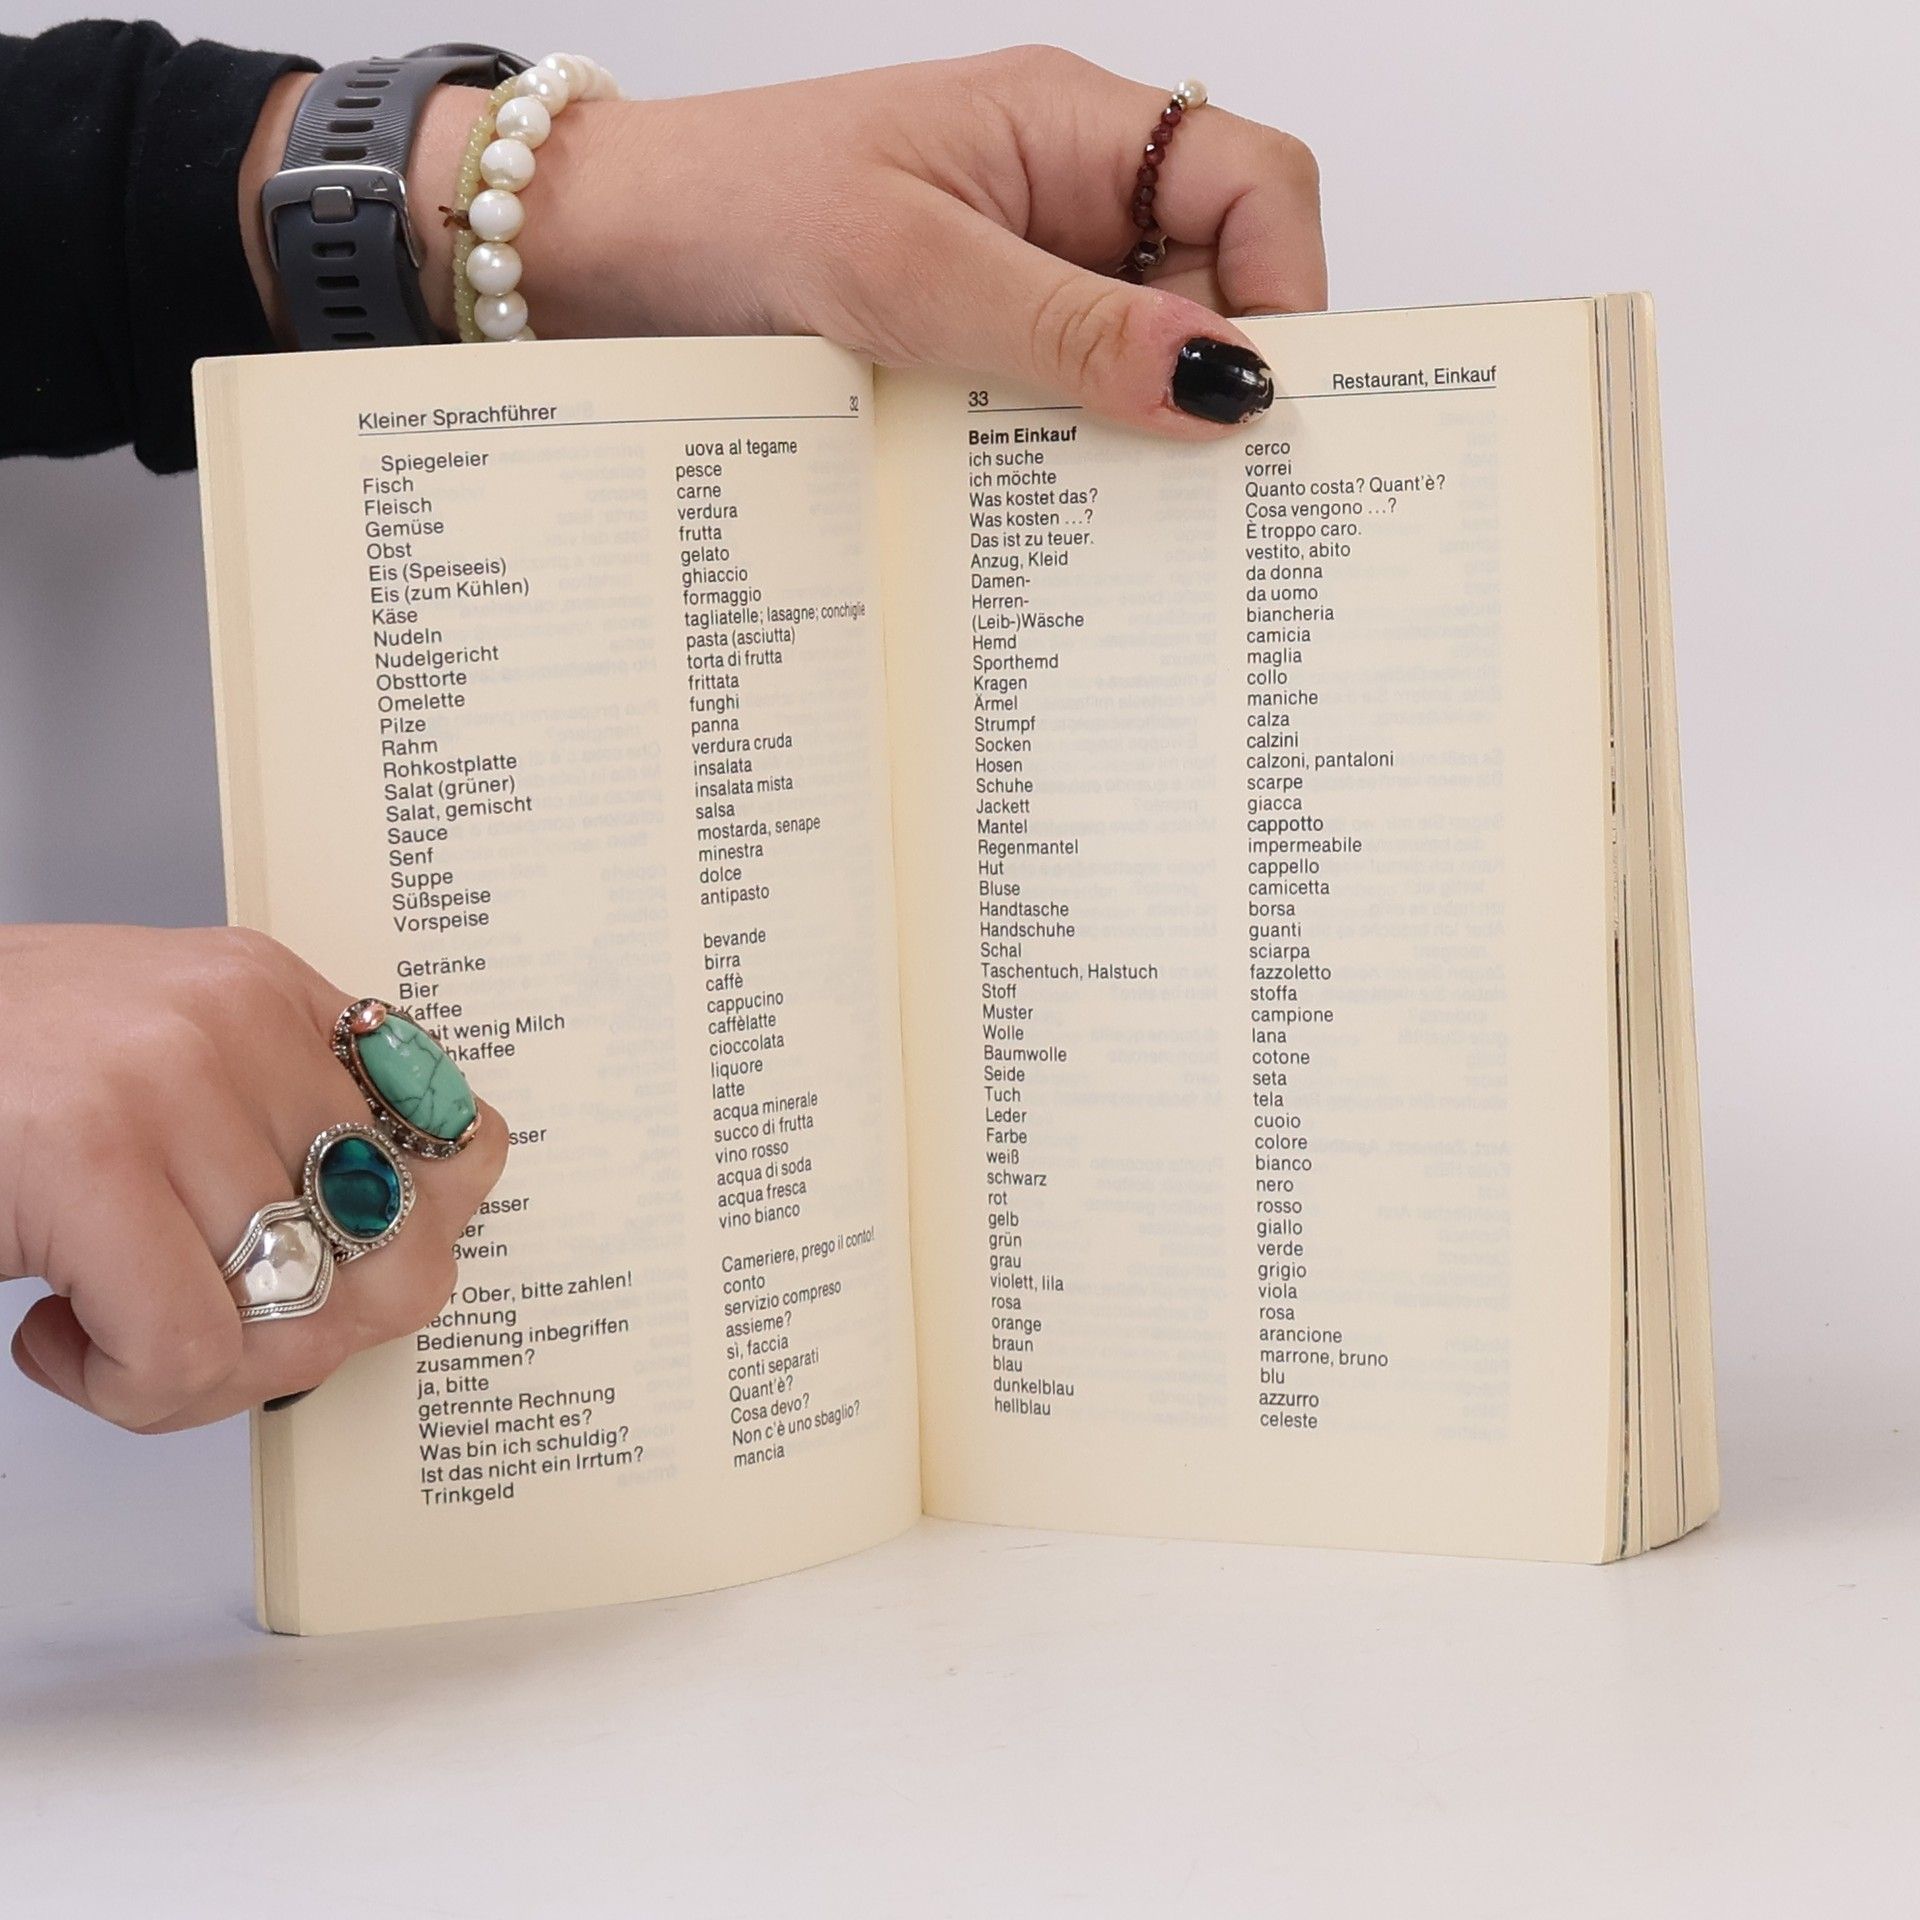 Kleiner Sprachführer 32
Spiegeleier uova al tegame
Fisch pesce
Fleisch carne
Gemüse verdura
Obst frutta
Eis (Speiseeis) gelato
Eis (zum Kühlen) ghiaccio
Käse formaggio
Nudeln tagliatelle; lasagne; conchiglie
Nudelgericht pasta (asciutta)
Obsttorte torta di frutta
Omelette frittata
Pilze funghi
Rahm panna
Rohkostplatte verdura cruda
Salat (grüner) insalata
Salat, gemischt insalata mista
Sauce salsa
Senf mostarda, senape
Suppe minestra
Süßspeise dolce
Vorspeise antipasto
Getränke bevande
Bier birra
Kaffee caffè
wenig Milch cappucino
caffèlatte
cioccolata
liquore
latte
acqua minerale
succo di frutta
vino rosso
acqua di soda
acqua fresca
vino bianco
Ober, bitte zahlen! Cameriere, prego il conto!
Rechnung conto
Bedienung inbegriffen servizio compreso
zusammen? assieme?
ja, bitte sì, faccia
getrennte Rechnung conti separati
Wieviel macht es? Quant'è?
Was bin ich schuldig? Cosa devo?
Ist das nicht ein Irrtum? Non c'è uno sbaglio?
Trinkgeld mancia
33 Restaurant, Einkauf
Beim Einkauf
ich suche cerco
ich möchte vorrei
Was kostet das? Quanto costa? Quant'è?
Was kosten ...? Cosa vengono ...?
Das ist zu teuer. È troppo caro.
Anzug, Kleid vestito, abito
Damen- da donna
Herren- da uomo
(Leib-)Wäsche biancheria
Hemd camicia
Sporthemd maglia
Kragen collo
Ärmel maniche
Strumpf calza
Socken calzini
Hosen calzoni, pantaloni
Schuhe scarpe
Jackett giacca
Mantel cappotto
Regenmantel impermeabile
Hut cappello
Bluse camicetta
Handtasche borsa
Handschuhe guanti
Schal sciarpa
Taschentuch, Halstuch fazzoletto
Stoff stoffa
Muster campione
Wolle lana
Baumwolle cotone
Seide seta
Tuch tela
Leder cuoio
Farbe colore
weiß bianco
schwarz nero
rot rosso
gelb giallo
grün verde
grau grigio
violett, lila viola
rosa rosa
orange arancione
braun marrone, bruno
blau blu
dunkelblau azzurro
hellblau celeste